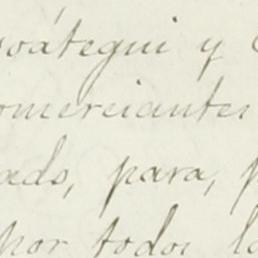 oátegui y
omerciantes
ado, para,
por todos